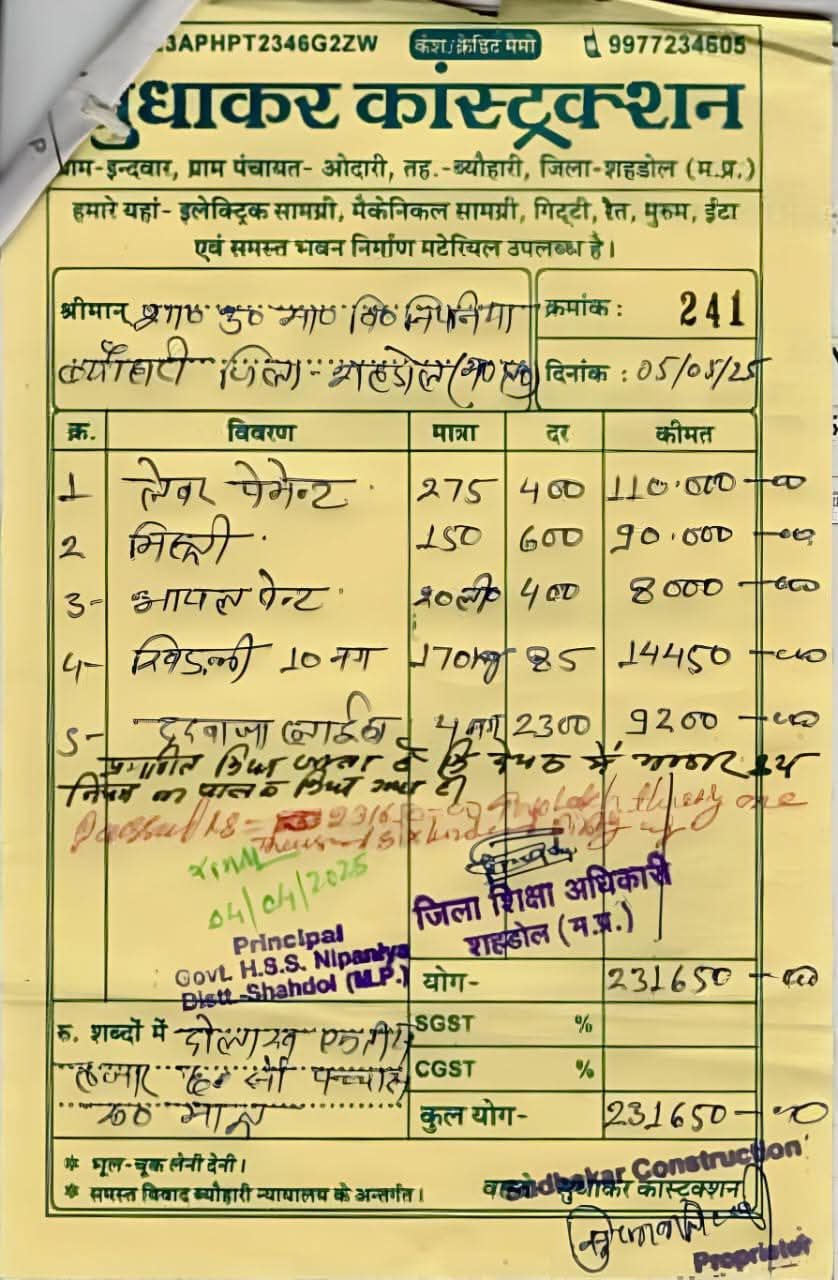 23APHPT2346G2ZW कैश/क्रेडिट मेमो 9977234605
सुधाकर कांस्ट्रक्शन
ग्राम-इन्दवार, ग्राम पंचायत- ओदारी, तह.-ब्यौहारी, जिला-शहडोल (म.प्र.)
हमारे यहां- इलेक्ट्रिक सामग्री, मैकेनिकल सामग्री, गिट्टी, रेत, मुरुम, ईंटा
एवं समस्त भवन निर्माण मटेरियल उपलब्ध है।
श्रीमान् शा० उ० मा० वि० निपनिया क्रमांक : 241
ब्यौहारी जिला - शहडोल (म०प्र०) दिनांक : 05/05/25
क्र. विवरण मात्रा दर कीमत
1 लेबर पेमेन्ट 275 400 110.000 -00
2 मिस्त्री 150 600 90.000 -00
3- आयल पेन्ट 20 ली० 400 8000 -00
4- खिड़की 10 नग 170kg 85 14450 -00
5- दरवाजा 4 नग 2300 9200 -00
प्रमाणित किया जाता है कि में भण्डार क्रय
नियम का पालन किया गया है।
231650 thirty one
thousand six hundred
04/04/2025
जिला शिक्षा अधिकारी
शहडोल (म.प्र.)
Principal
Govt. H.S.S. Nipaniya
Distt.-Shahdol (M.P.)
योग- 231650 -00
रु. शब्दों में दो लाख एकतीस SGST %
हजार छः सौ पच्चास CGST %
रु० मात्र कुल योग- 231650 -00
* भूल-चूक लेनी देनी।
* समस्त विवाद ब्यौहारी न्यायालय के अन्तर्गत। वास्ते सुधाकर कांस्ट्रक्शन
Sudhakar Construction
Proprietor